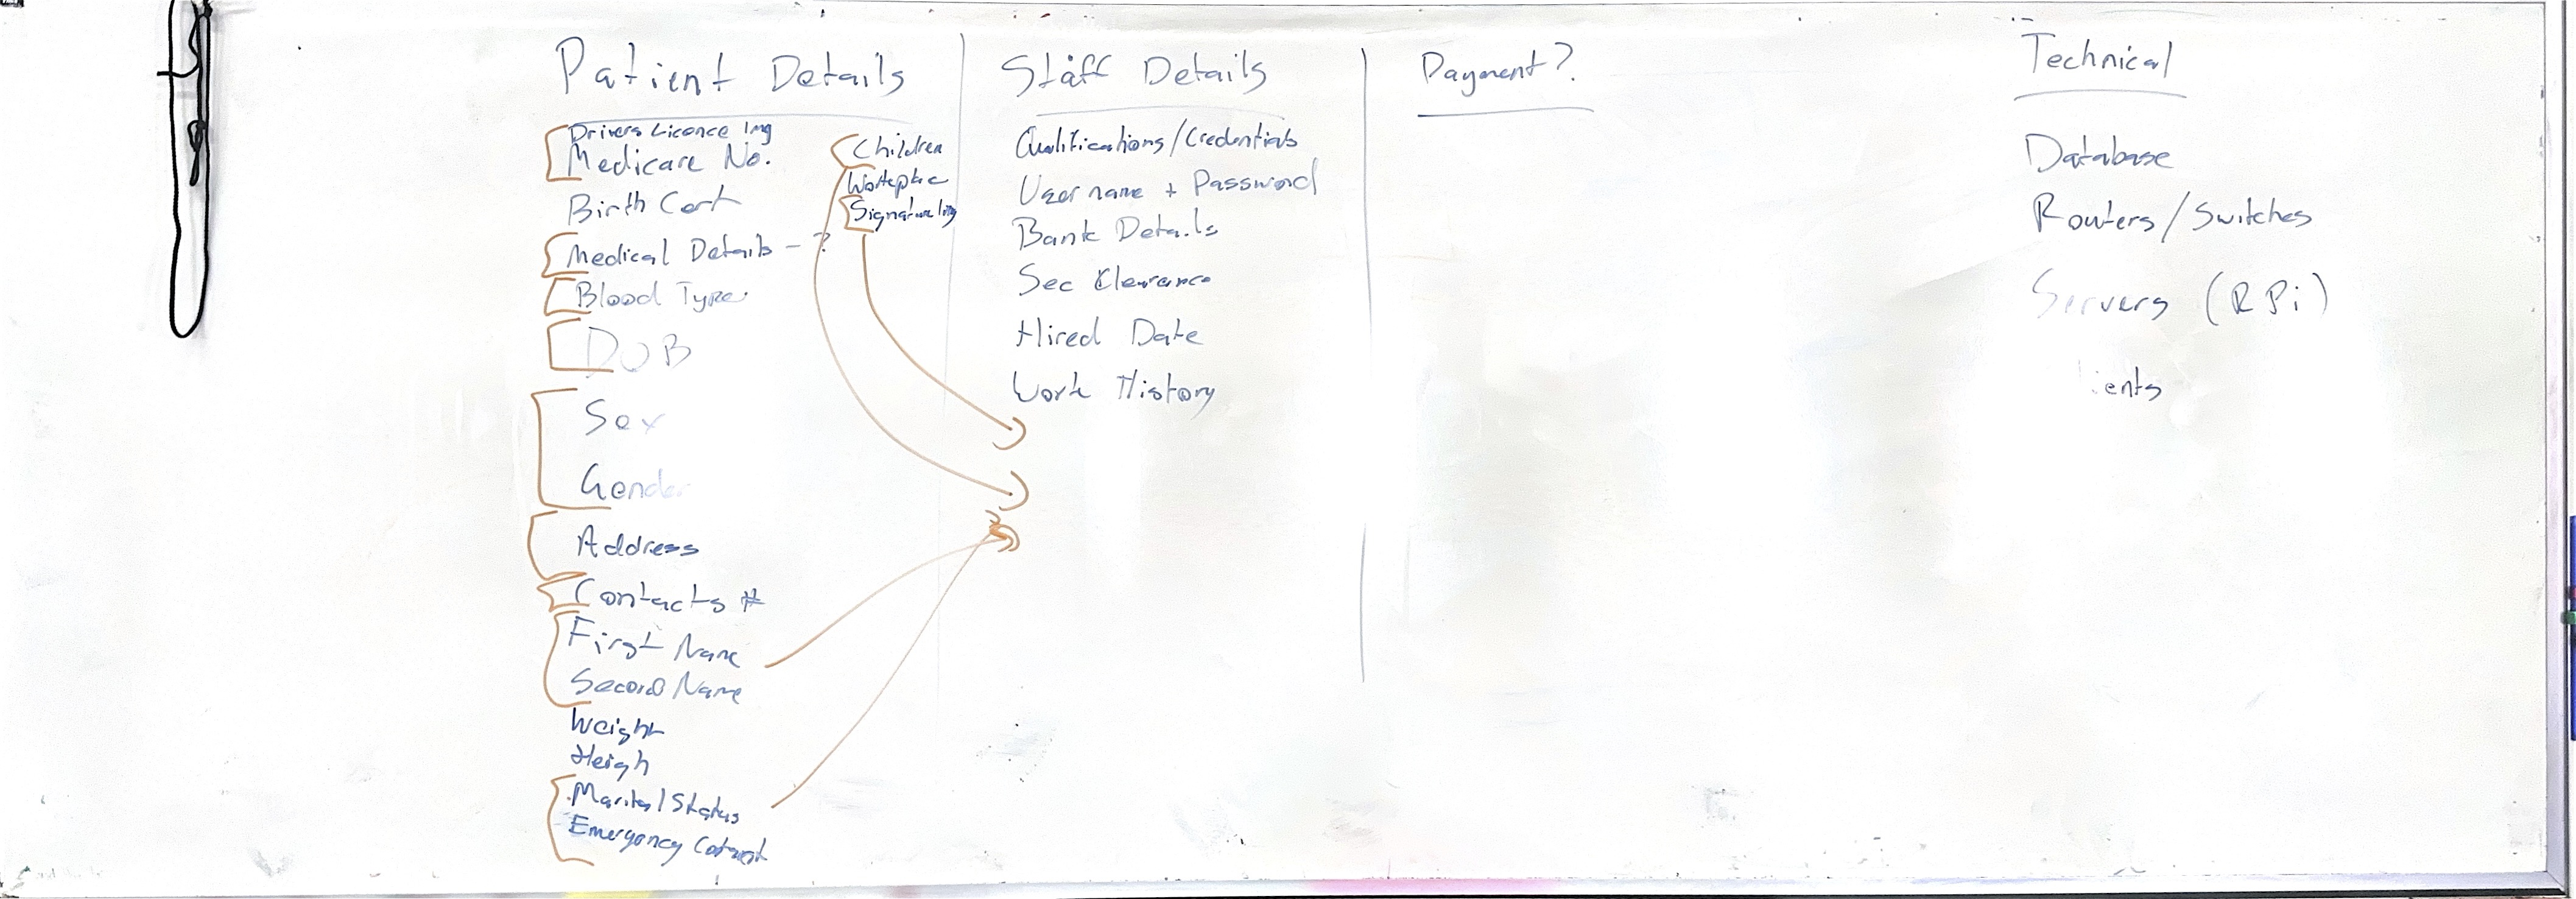 Patient Details
Drivers Licence Img
Medicare No.
Birth Cert
Medical Details - ?
Blood Type
DOB
Sex
Gender
Address
Contacts #
First Name
Second Name
Weight
Heigh
Marital Status
Emergency Contact
Children
Workplace
Signature Img
Staff Details
Qualifications/Credentials
Username + Password
Bank Details
Sec Clearance
Hired Date
Work History
Payment?
Technical
Database
Routers/Switches
Servers (RPi)